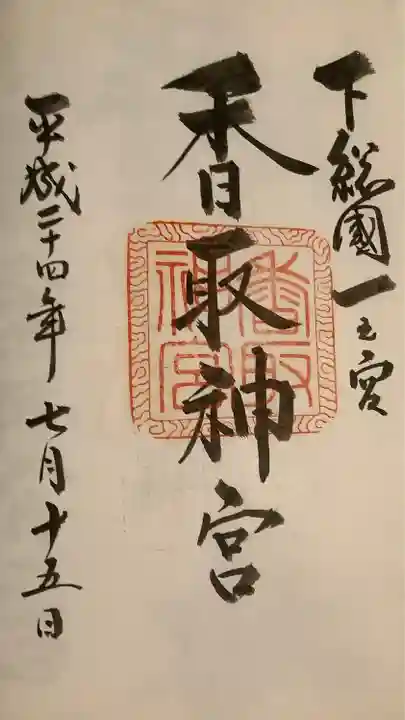 下総國一之宮
香取神宮
香取神宮
平成二十四年七月十五日